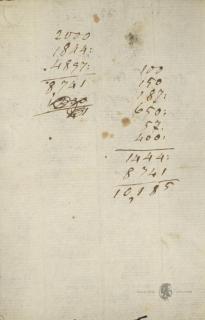 2000
1844:
4897:
8741
100
150
187:
650:
57
400:
1444:
8741
10,185